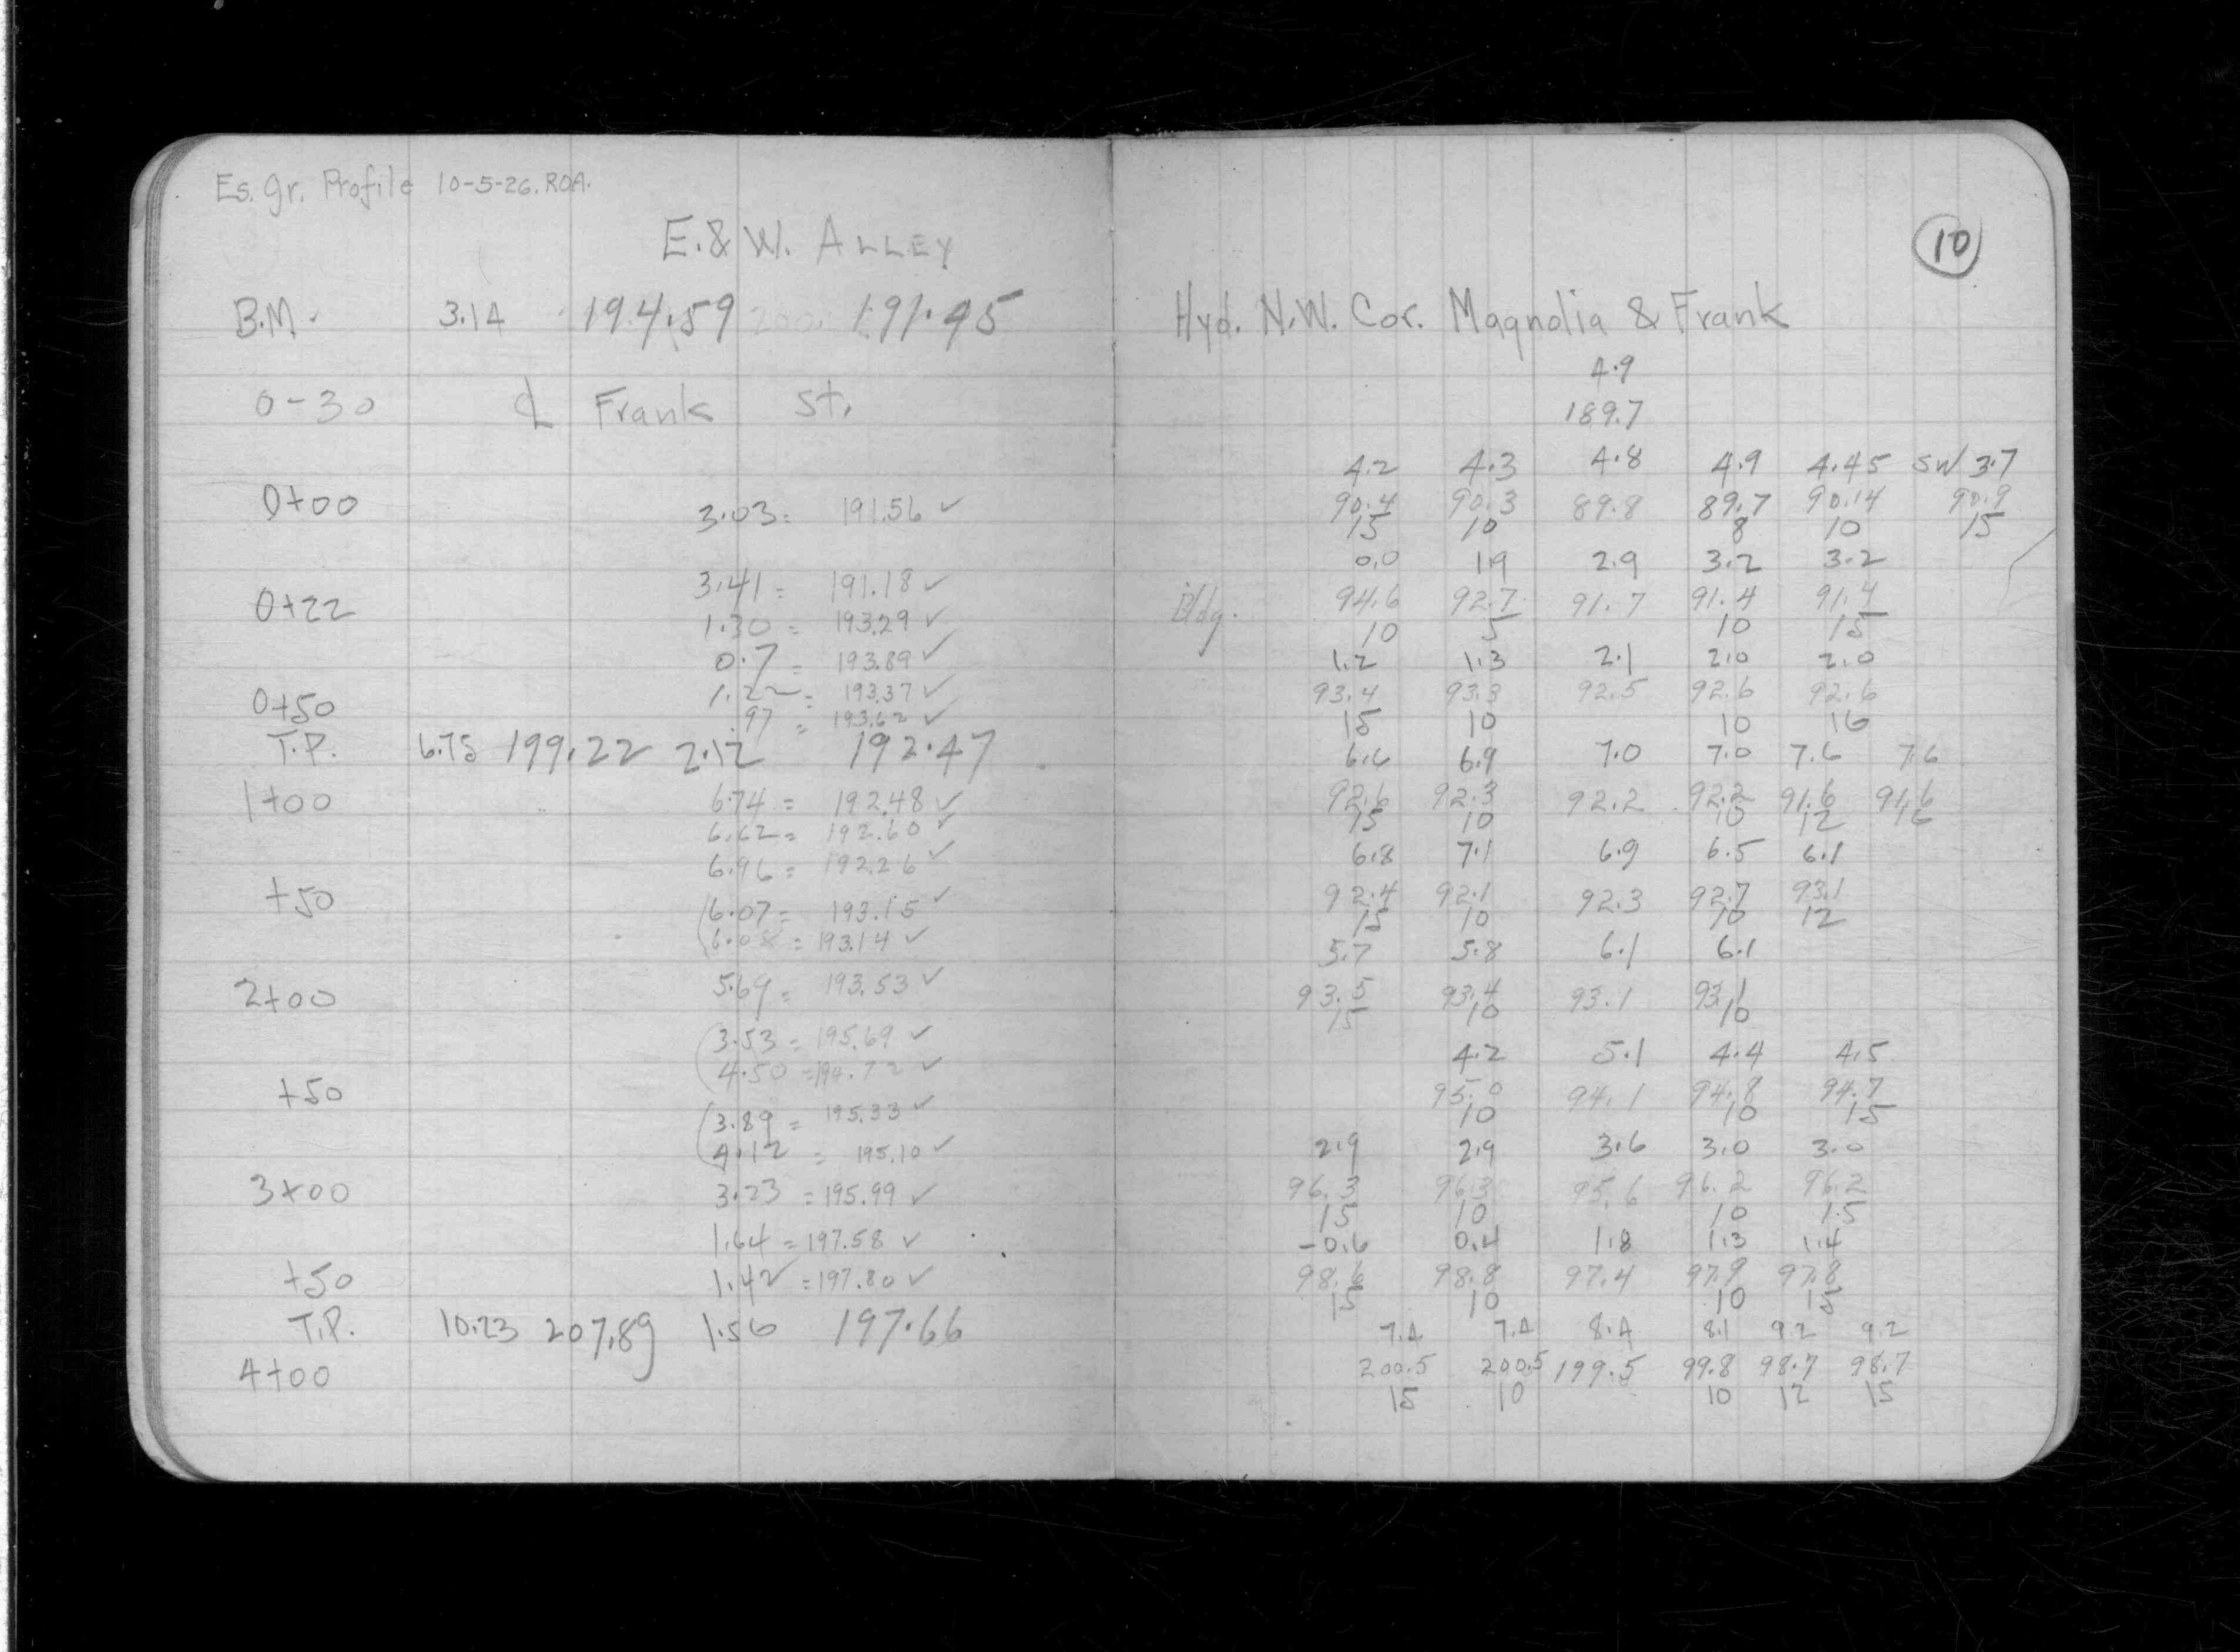 Es. Gr. Profile 10-5-26. ROA.
E. & W. ALLEY
10
B.M. 3.14 194.59 191.45 Hyd. N.W. Cor. Magnolia & Frank
4.9
0-30 ℄ Frank St. 189.7
4.2 4.3 4.8 4.9 4.45 SW 3.7
0+00 3.03 = 191.56 ✓ 90.4 90.3 89.8 89.7 90.14 90.9
15 10 8 10 15
0.0 1.9 2.9 3.2 3.2
3.41 = 191.18 ✓
0+22 1.30 = 193.29 ✓ Bldg. 94.6 92.7 91.7 91.4 91.4
10 5 10 15
0.7 = 193.89 ✓ 1.2 1.3 2.1 2.0 2.0
0+50 1.22 = 193.37 ✓ 93.4 93.3 92.5 92.6 92.6
.97 = 193.62 ✓ 15 10 10 16
T.P. 6.75 199.22 2.12 192.47 6.6 6.9 7.0 7.0 7.6 7.6
1+00 6.74 = 192.48 ✓ 92.6 92.3 92.2 92.2 91.6 91.6
6.62 = 192.60 ✓ 15 10 10 12 16
6.96 = 192.26 ✓ 6.8 7.1 6.9 6.5 6.1
+50 6.07 = 193.15 ✓ 92.4 92.1 92.3 92.7 93.1
15 10 10 12
6.08 = 193.14 ✓ 5.7 5.8 6.1 6.1
2+00 5.69 = 193.53 ✓ 93.5 93.4 93.1 93.1
15 10 10
3.53 = 195.69 ✓ 4.2 5.1 4.4 4.5
4.50 = 194.72 ✓
+50 95.0 94.1 94.8 94.7
3.89 = 195.33 ✓ 10 10 15
4.12 = 195.10 ✓ 2.9 2.9 3.6 3.0 3.0
3+00 3.23 = 195.99 ✓ 96.3 96.3 95.6 96.2 96.2
15 10 10 15
1.64 = 197.58 ✓ -0.6 0.4 1.8 1.3 1.4
+50 1.42 = 197.80 ✓ 98.6 98.8 97.4 97.9 97.8
15 10 10 15
T.P. 10.23 207.89 1.56 197.66 7.4 7.4 8.4 8.1 9.2 9.2
4+00 200.5 200.5 199.5 99.8 98.7 98.7
15 10 10 12 15